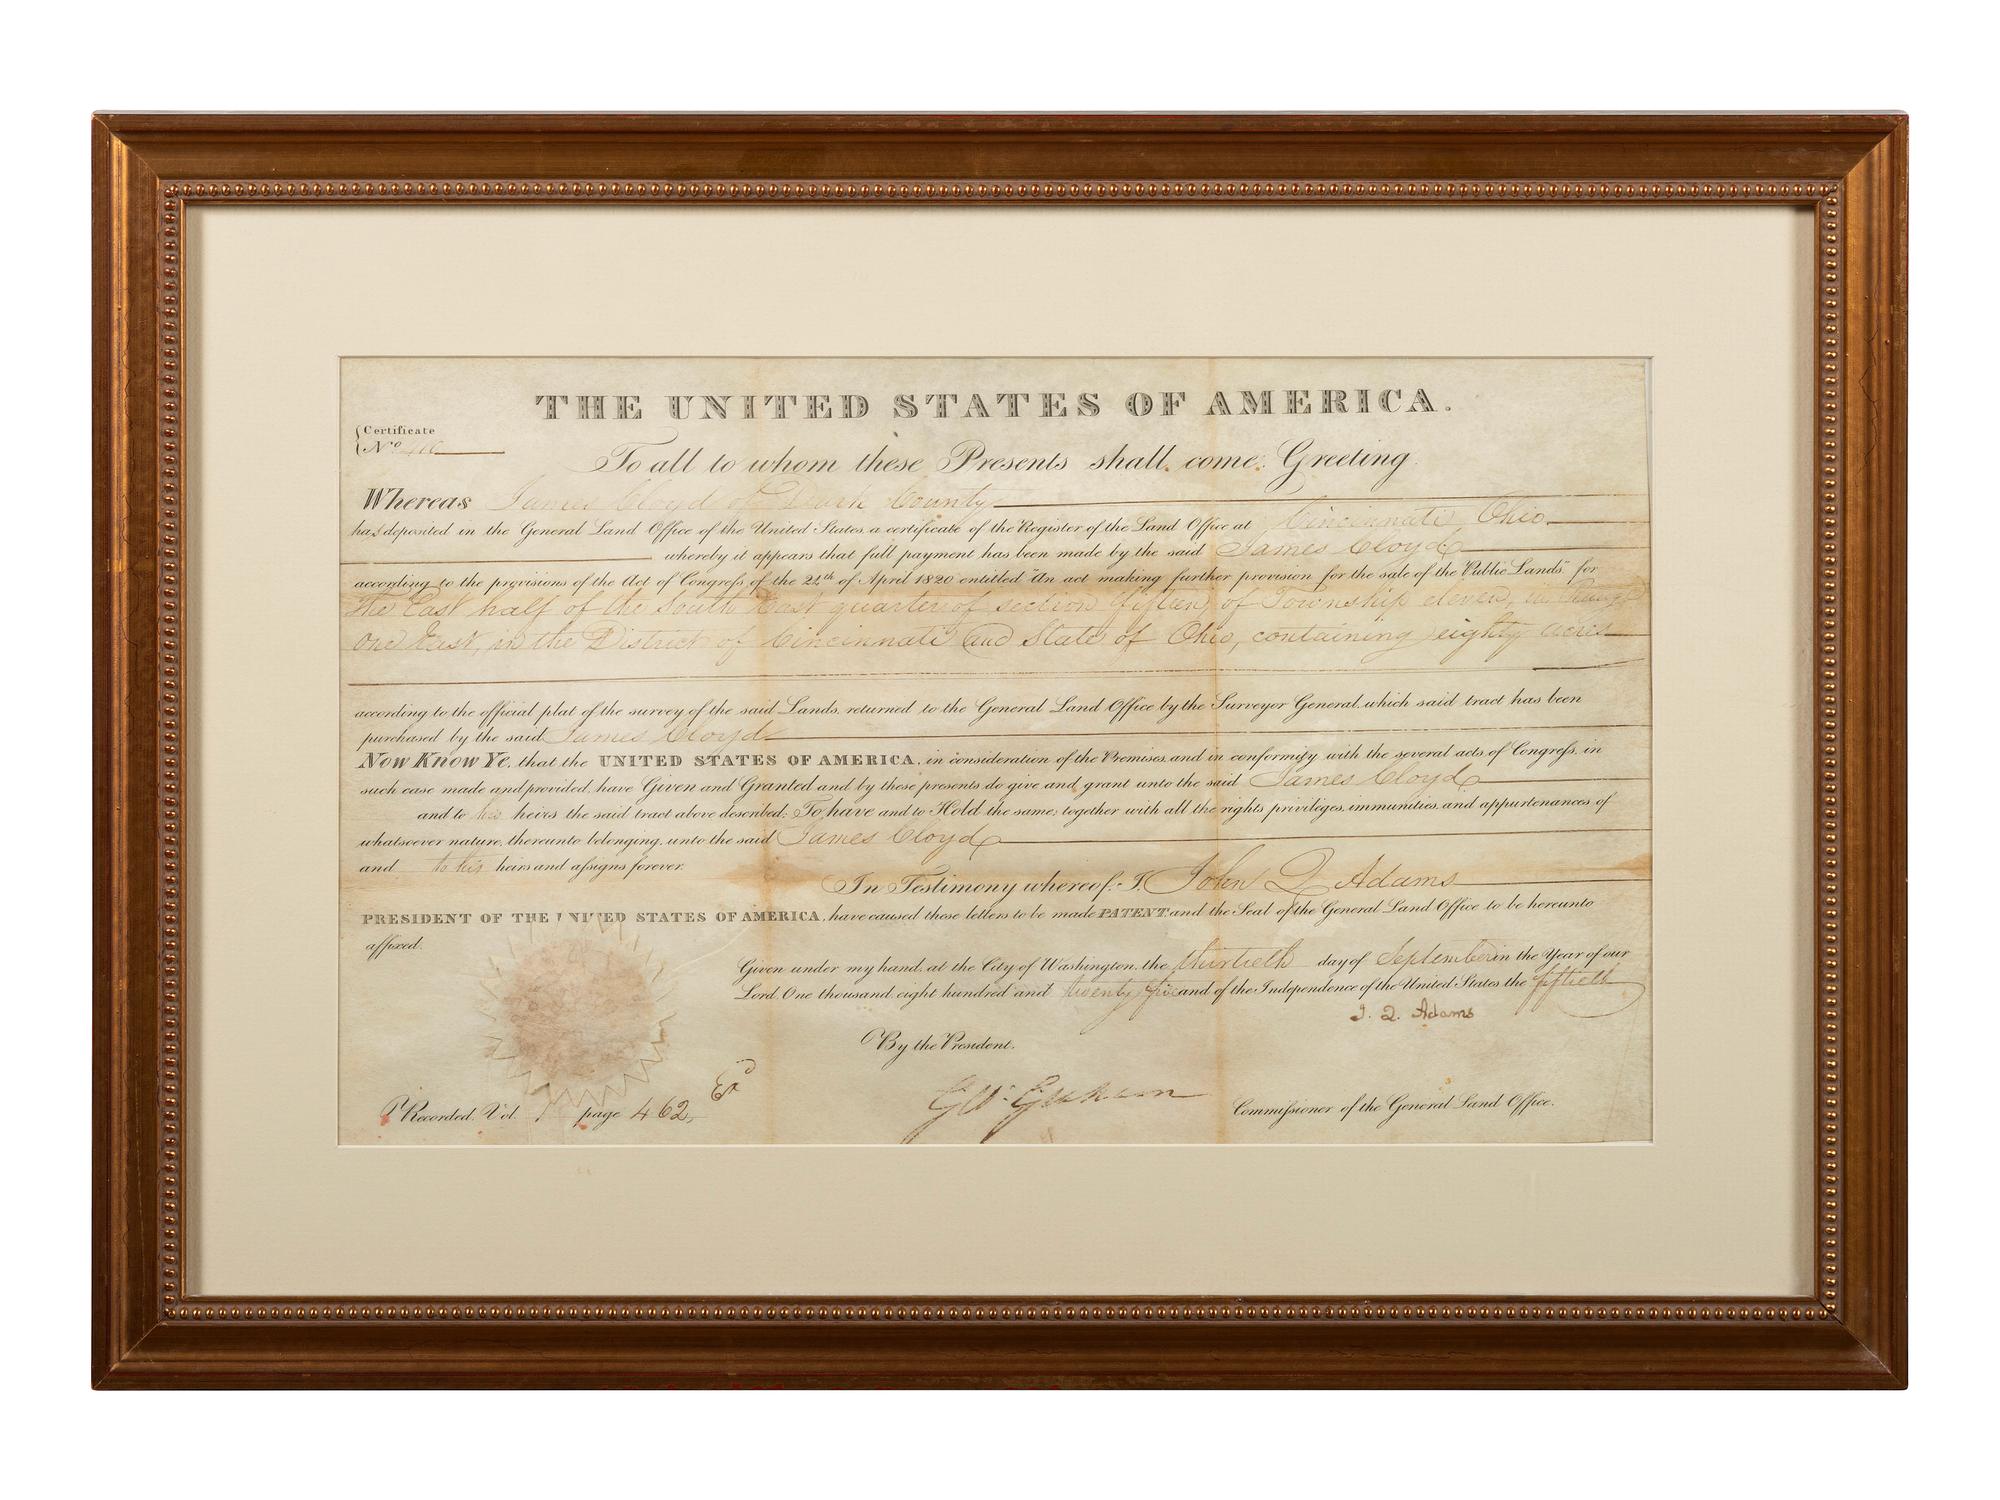 THE UNITED STATES OF AMERICA.
Certificate
No
To all to whom these Presents shall come, Greeting
Whereas James Cloyd of Dark County
has deposited in the General Land Office of the United States, a certificate of the Register of the Land Office at Cincinnati, Ohio
whereby it appears that full payment has been made by the said James Cloyd
according to the provisions of the Act of Congress of the 24th of April 1820 entitled "An act making further provision for the sale of the Public Lands" for
the East half of the South East quarter of section fifteen, of Township eleven, in Range
One East, in the District of Cincinnati and State of Ohio, containing eighty acres
according to the official plat of the survey of the said Lands, returned to the General Land Office by the Surveyor General, which said tract has been
purchased by the said James Cloyd
Now Know Ye, that the UNITED STATES OF AMERICA, in consideration of the Premises, and in conformity with the several acts of Congress, in
such case made and provided, have Given and Granted and by these presents do give and grant unto the said James Cloyd
and to his heirs the said tract above described; To have and to Hold the same, together with all the rights privileges, immunities, and appurtenances of
whatsoever nature, thereunto belonging, unto the said James Cloyd
and to his heirs and assigns forever.
In Testimony whereof, I, John Q Adams
PRESIDENT OF THE UNITED STATES OF AMERICA, have caused these letters to be made PATENT and the Seal of the General Land Office to be hereunto
affixed.
Given under my hand, at the City of Washington, the thirtieth day of September in the Year of our
Lord, One thousand eight hundred and twenty five and of the Independence of the United States the fiftieth
J. Q. Adams
By the President.
Geo: Graham Commissioner of the General Land Office.
Recorded, Vol. 1 page 462, Exd